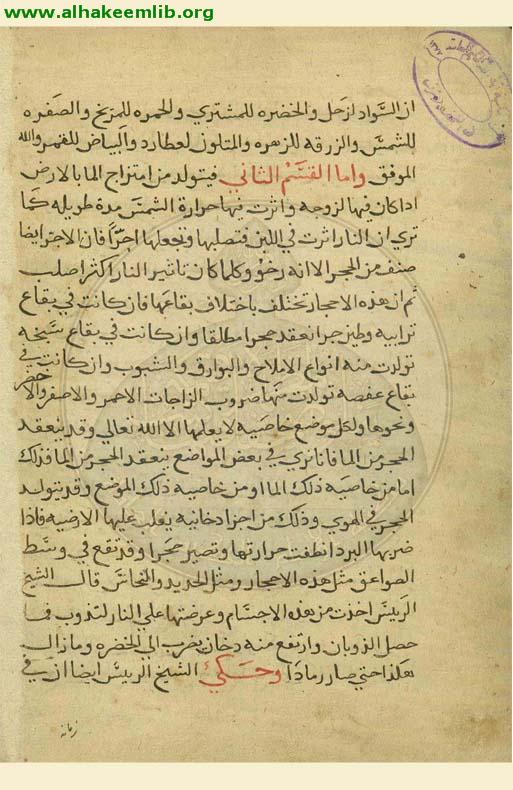 www.alhakeemlib.org
ان السواد لزحل والخضره للمشتري والحمره للمريخ والصفره
للشمس والزرقه للزهره والمتلون لعطارد والبياض للقمر والله
الموفق واما القسم الثاني فيتولد من امتزاج الما بالارض
اذا كان فيها لزوجه واثرت فيها حرارة الشمس مدة طويله كما
تري ان النار اثرت في اللبن فتصلبها وتجعلها اجرا فان الاجر ايضا
صنف من الحجر الا انه رخو وكلما كان تاثير النار اكثر اصلب
ثم ان هذه الاحجار تختلف باختلاف بقاعها فان كانت في بقاع
ترابيه وطين حر انعقد حجرا مطلقا وان كانت في بقاع سبخه
تولدت منه انواع الاملاح والبوارق والشبوب وان كانت في
بقاع عفصه تولدت منها ضروب الزاجات الاحمر والاصفر والاخضر
ونحوها ولكل موضع خاصيه لا يعلمها الا الله تعالي وقد ينعقد
الحجر من الما فانا نري في بعض المواضع ينعقد الحجر من الما فذلك
اما من خاصيه ذلك الما او من خاصيه ذلك الموضع وقد يتولد
الحجر في الهوي وذلك من اجزا دخانيه يغلب عليها الارضيه فاذا
ضربها البرد انطفت حرارتها وتصير حجرا وقد تقع في وسط
الصواعق مثل هذه الاحجار ومثل الحديد والنحاس قال الشيخ
الرييس اخذت من هذه الاجسام وعرضتها علي النار لتذوب فما
حصل الذوبان وارتفع منه دخان يضرب الي الخضره وما زال
هكذا حتي صار رمادا وحكي الشيخ الرييس ايضا ان في
زمانه